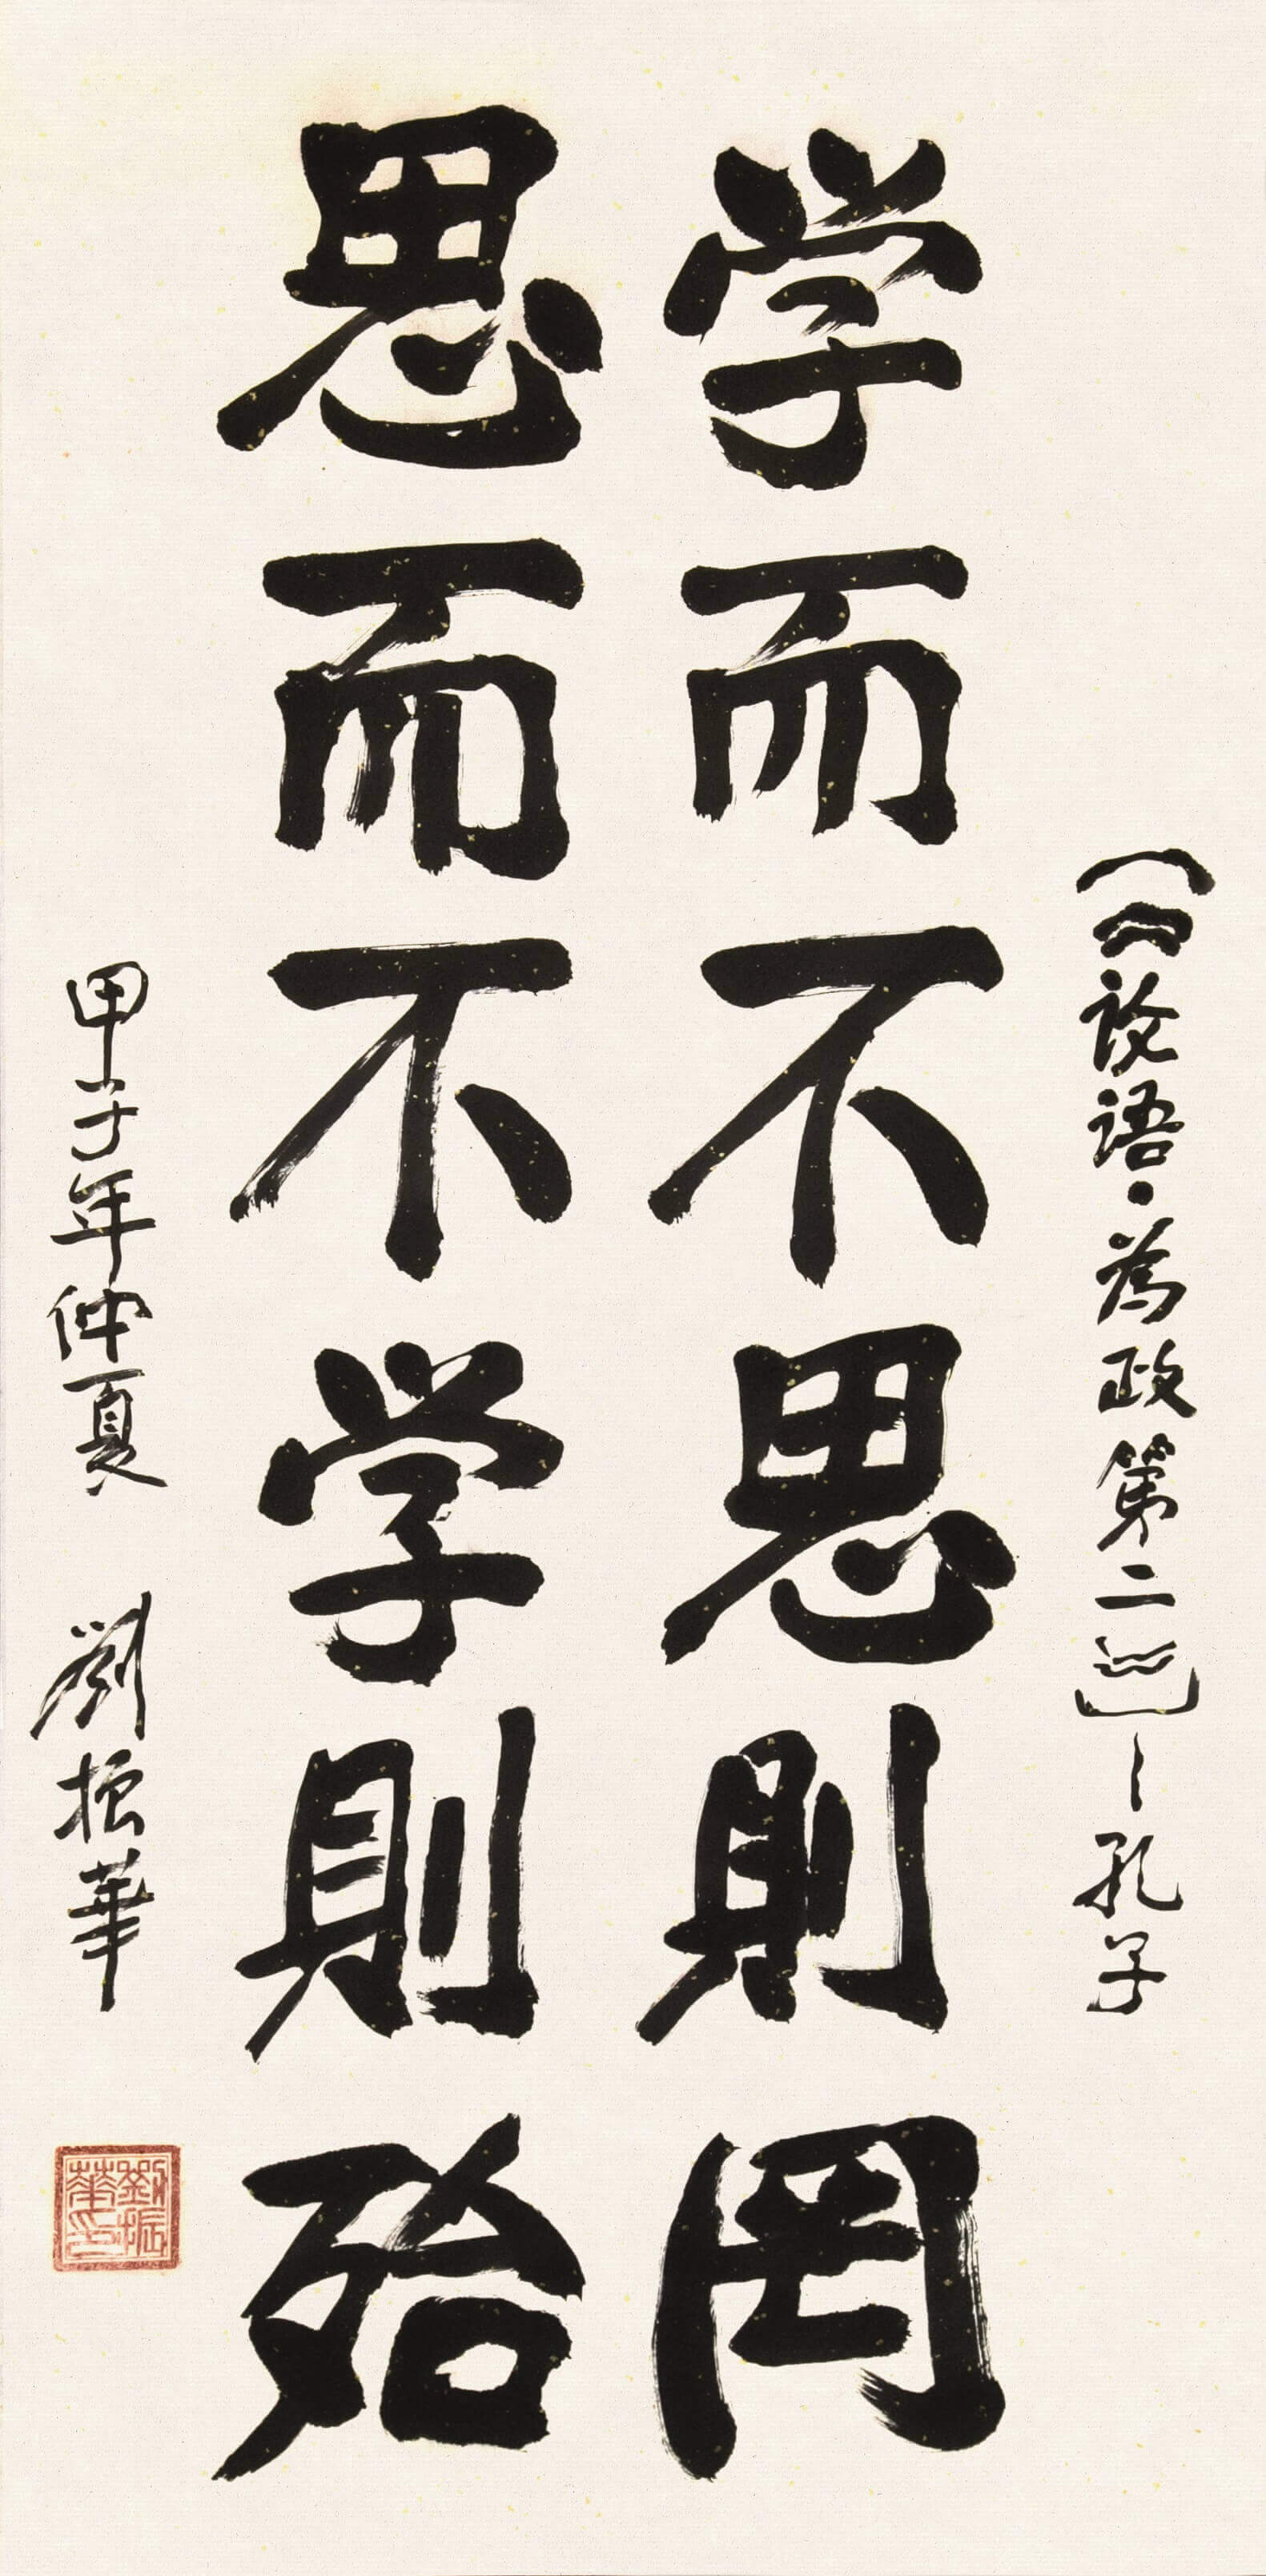 （《论语·為政第二》）—孔子
学而不思則罔
思而不学則殆
甲子年仲夏 劉振華
劉振華印